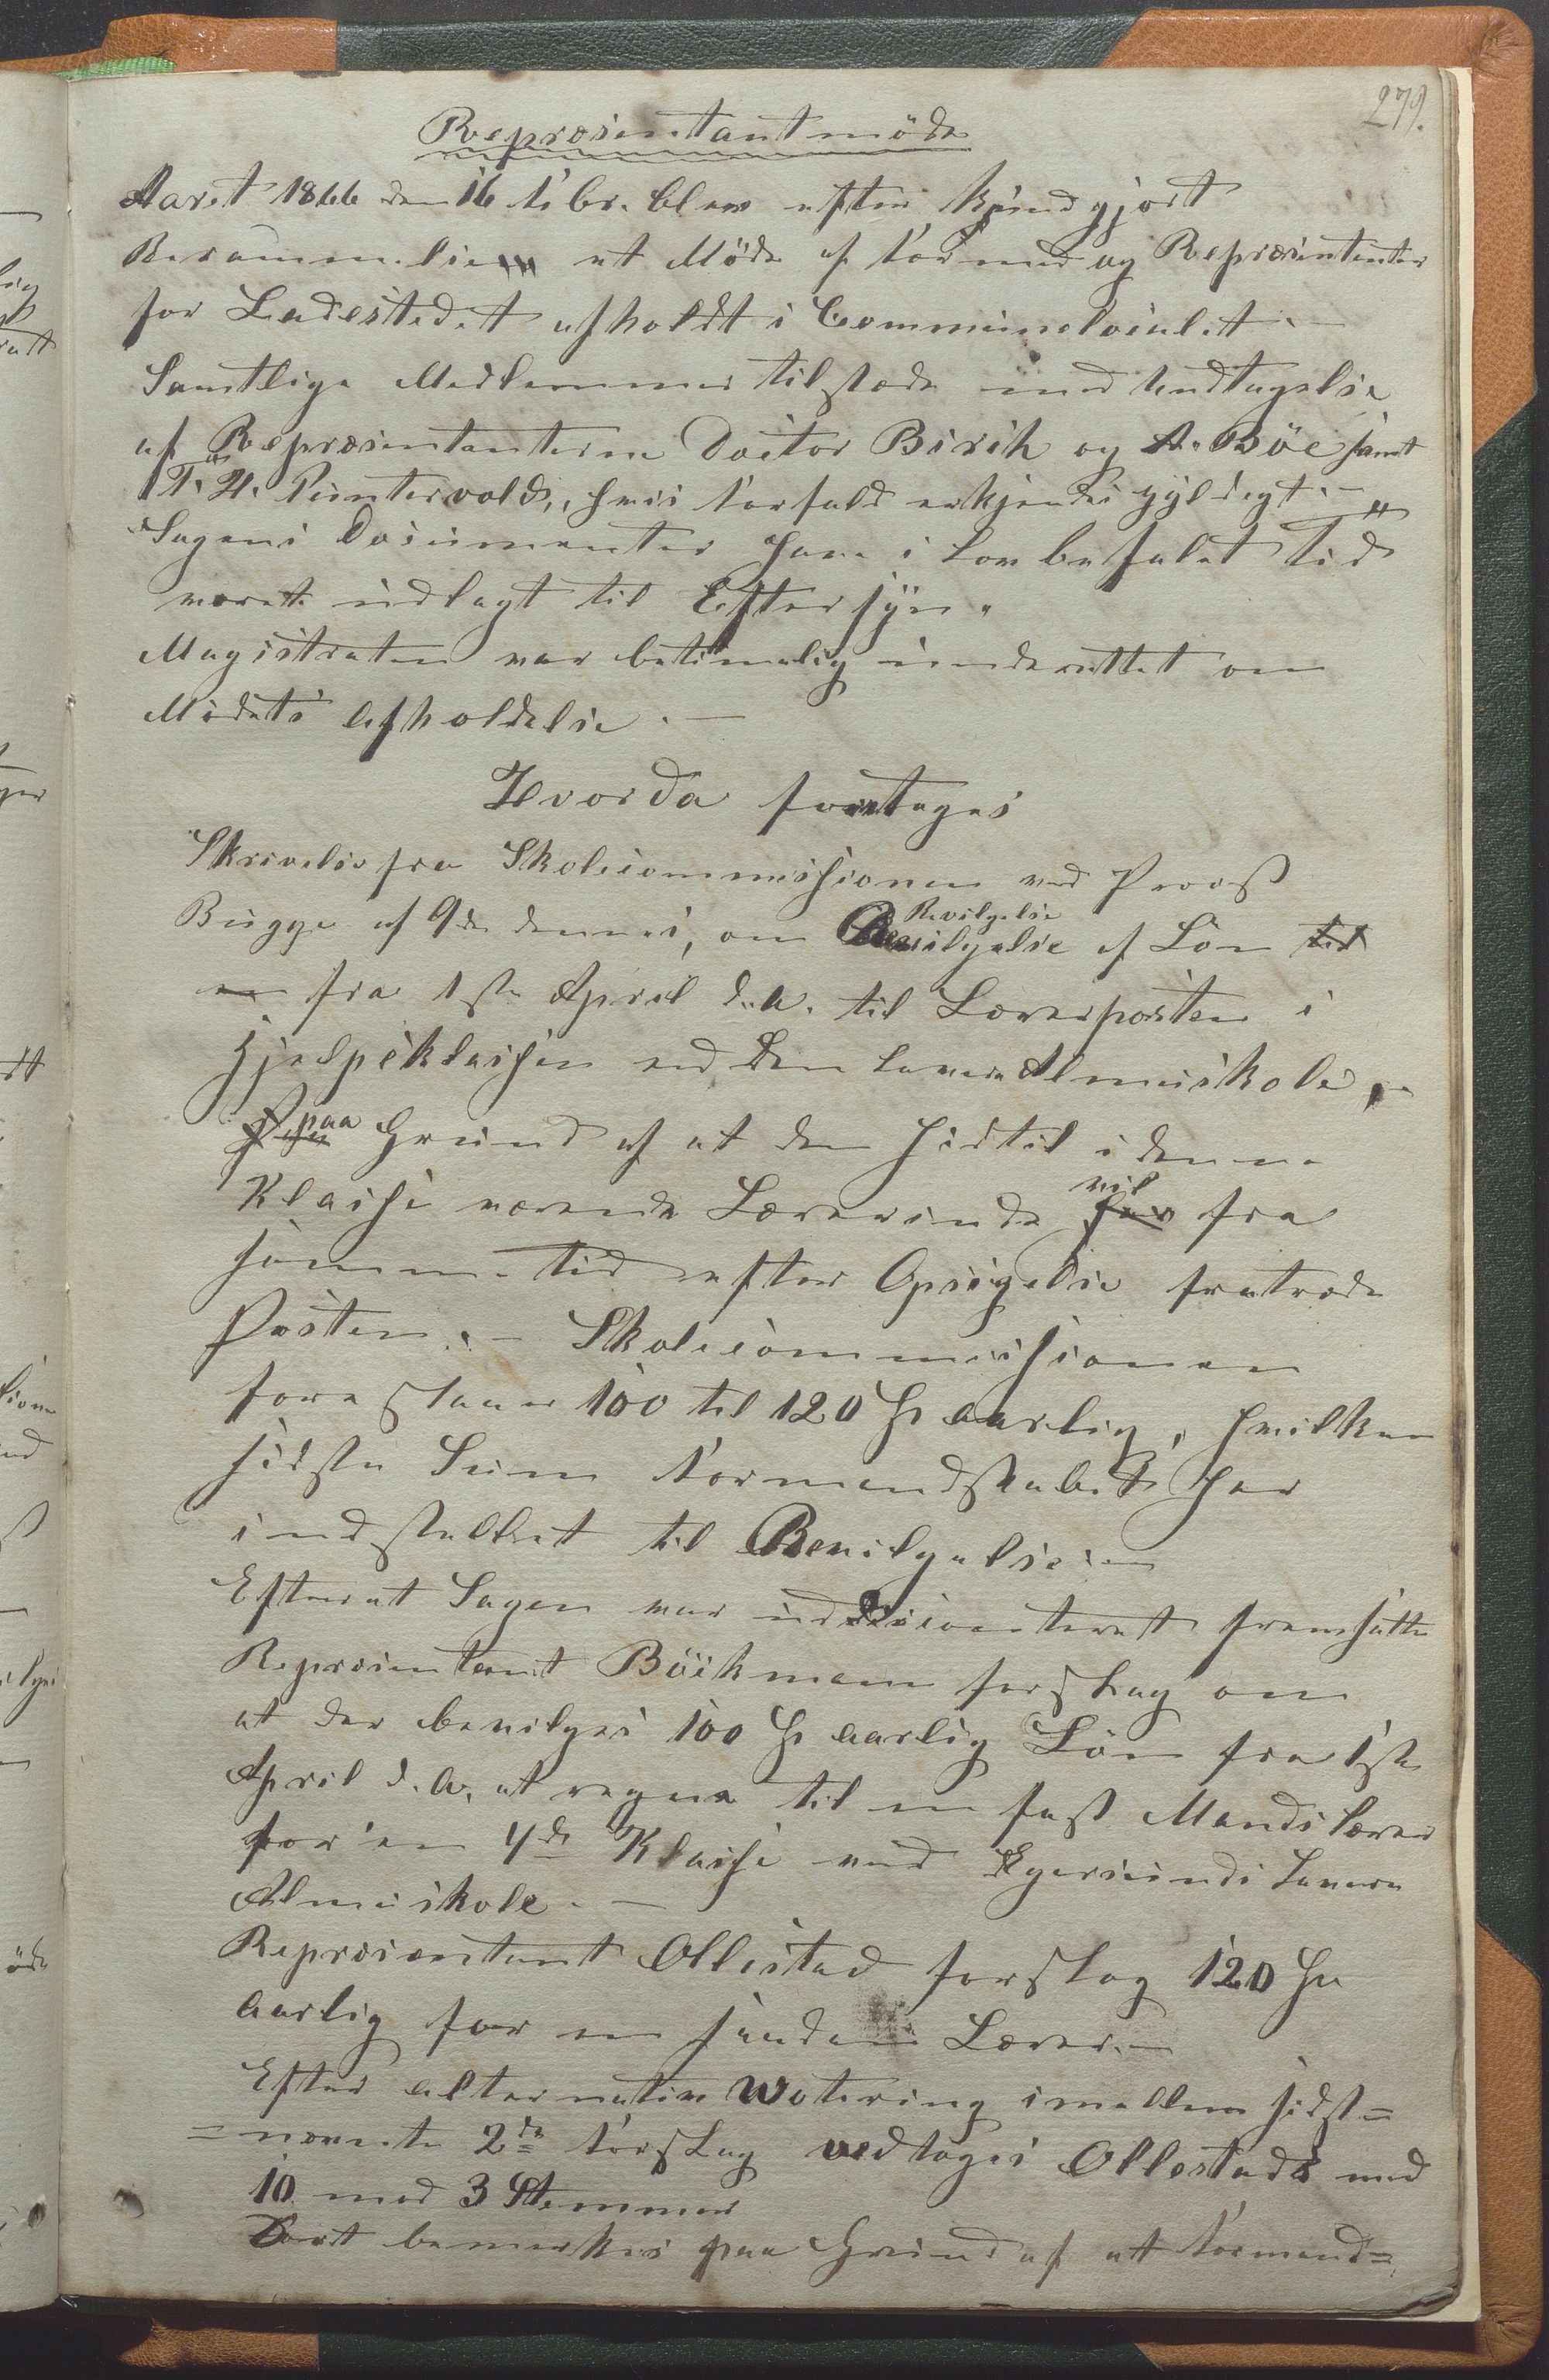 279.
Repræsentantmöde
Aaret 1866 den 16 Febr. blev efter kundgjort
Berammelse et Möde af Formænd og Repræsentanter
for Ladestedet afholdt i Communelocalet.–
Samtlige Medlemmer tilstede med Undtagelse
af Repræsentanterne Doctor Birch og A. Böe samt
T. H. Puntervold, hvis Forfald erkjendes gyldigt.–
Sagens Documenter have i Lovbefalet Tid
været udlagt til Eftersyn.
Magistraten var betimelig underrettet om
Mödets Afholdelse.–
Hvorda foretages
Skrivelse fra Skolecommissionen ved Provst
Bugge af 9de dennes, om Bevilgelse Bevilgelse af Lön til
en fra 1ste April d.A. til Lærerposten i
Hjelpeklassen ved den lavere Almueskole,–
paa Grund af at den hidtil i denne
Klasse værende Lærerinde har vil fra
samme Tid efter Opsigelse fratræde
Posten.– Skolecommissionen
foreslaaer 100 til 120 Spd aarlig, hvilken
sidste Sum Formandskabet har
indstillet til Bevilgelse.–
Efterat Sagen var uddiscouteret fremsatte
Repræsentant Böckmann forslag om
at der bevilges 100 Spd aarlig Lön fra 1ste
April d.A. at regne til en fast Mandslærer
for en 4de Klasse ved Egersunds lavere
Almueskole.–
Repræsentant Ollestad forslog 120 Spd
aarlig for en saadan Lærer.–
Efter alternativ Votering imellem sidst=
=nævnte 2de Forslag vedtoges Ollestads med
10 mod 3 Stemmer
Dort bemærkes paa Grund af at Formand=